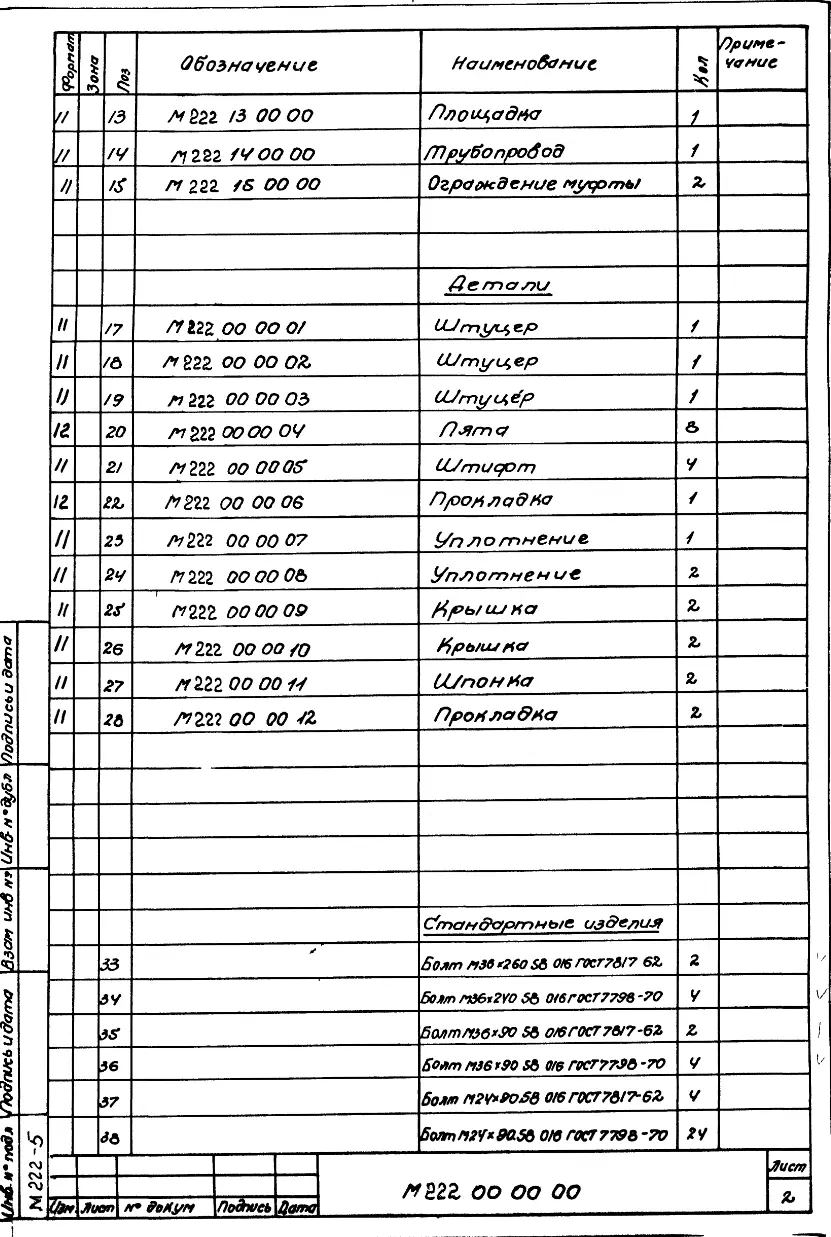 Формат Зона Поз Обозначение Наименование Кол Приме-
чание
11 13 М222 13 00 00 Площадка 1
11 14 М222 14 00 00 Трубопровод 1
11 15 М222 15 00 00 Ограждение муфты 2
Детали
11 17 М222 00 00 01 Штуцер 1
11 18 М222 00 00 02 Штуцер 1
11 19 М222 00 00 03 Штуцер 1
12 20 М222 00 00 04 Пята 8
11 21 М222 00 00 05 Штифт 4
12 22 М222 00 00 06 Прокладка 1
11 23 М222 00 00 07 Уплотнение 1
11 24 М222 00 00 08 Уплотнение 2
11 25 М222 00 00 09 Крышка 2
11 26 М222 00 00 10 Крышка 2
11 27 М222 00 00 11 Шпонка 2
11 28 М222 00 00 12 Прокладка 2
Стандартные изделия
33 Болт М36×260 58 016 ГОСТ7817 62 2
34 Болт М36×240 58 016 ГОСТ7798-70 4
35 Болт М36×90 58 016 ГОСТ7817-62 2
36 Болт М36×90 58 016 ГОСТ7798-70 4
37 Болт М24×90.58 016 ГОСТ7817-62 4
38 Болт М24×90.58 016 ГОСТ7798-70 24
Инв. н° подл Подпись и дата Взам инв н° Инв н° дубл Подпись и дата
М222-5
Изм. Лист н° докум Подпись Дата
М222 00 00 00
Лист
2